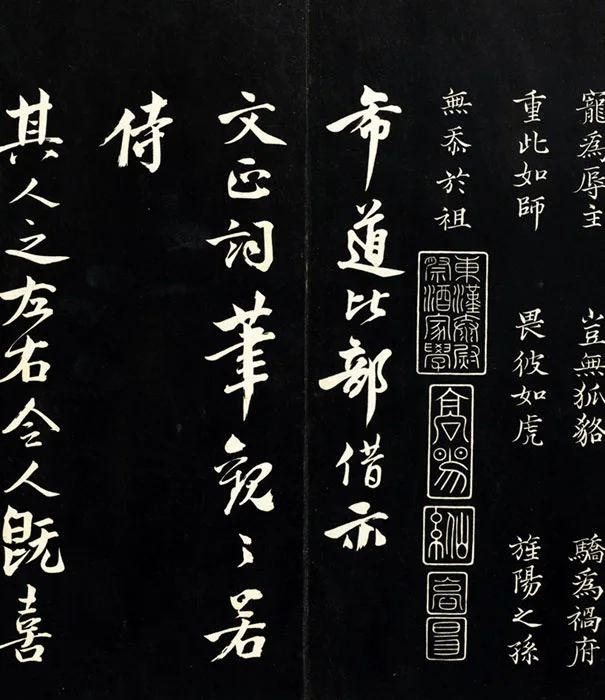 寵爲辱主 豈無狐貉 驕爲禍府
重此如師 畏彼如虎 旌陽之孫
無忝於祖
東漢泰尉祭酒家學
希道比部借示
文正詞筆觀〻若
侍
其人之左右令人既喜